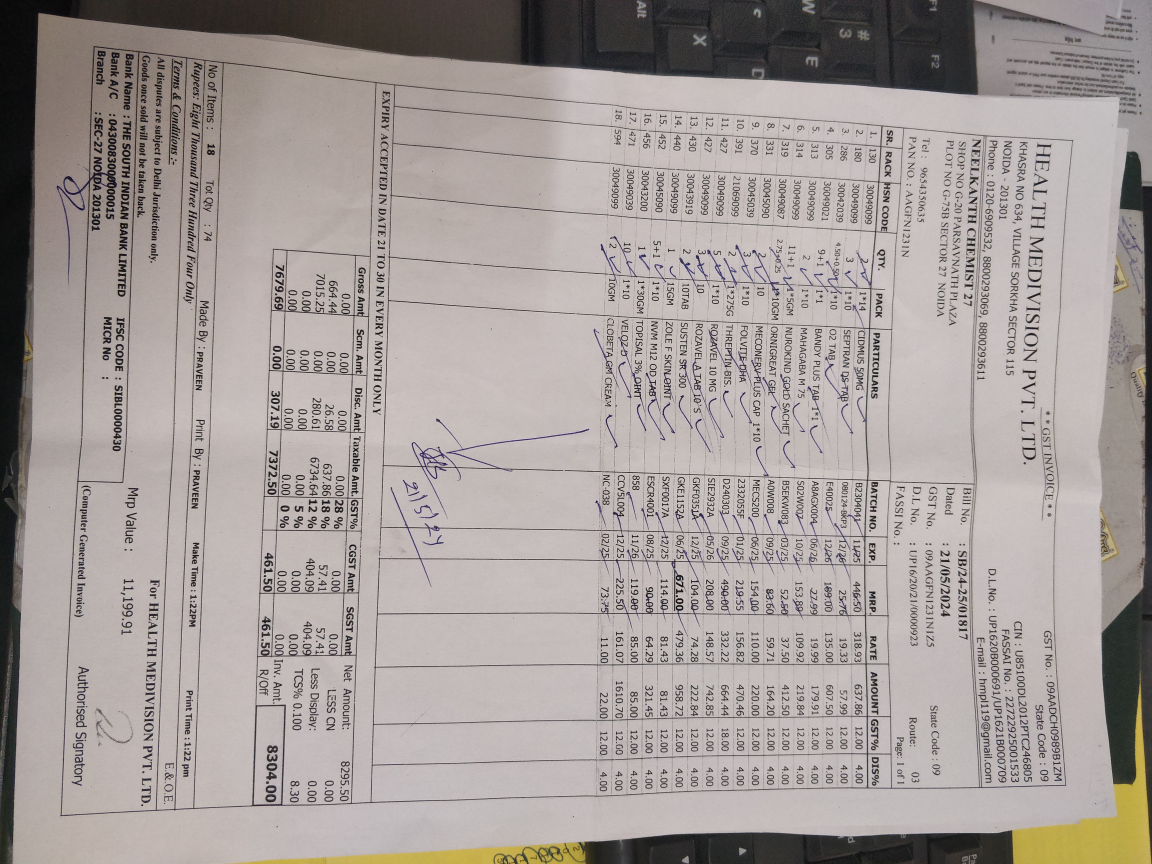 * * GST INVOICE * *
HEALTH MEDIVISION PVT. LTD.
KHASRA NO 634, VILLAGE SORKHA SECTOR 115
NOIDA - 201301
Phone : 0120-6909532, 8800293069, 8800293611
GST No. : 09AADCH0989B1ZM
State Code : 09
CIN : U85100DL2012PTC246805
FASSAI No. : 22722925001533
D.L.No. : UP1620B000691/UP1621B000709
E-mail : hmpl119@gmail.com
NEELKANTH CHEMIST 27
SHOP NO G-20 PARSAVNATH PLAZA
PLOT NO G-75B SECTOR 27 NOIDA
Tel : 9654350635
PAN NO. : AAGFN1231N
Bill No. : SB/24-25/01817
Dated : 21/05/2024
GST No. : 09AAGFN1231N1Z5
D.I. No. : UP16/20/21/0000923
FASSI No. :
State Code : 09
Route: 03
Page: 1 of 1
SR. RACK HSN CODE QTY. PACK PARTICULARS BATCH NO. EXP. MRP. RATE AMOUNT GST% DIS%
1. 130 30049099 2 1*14 CIDMUS 50MG B2304041 11/25 446.50 318.93 637.86 12.00 4.00
2. 180 30049099 3 1*10 SEPTRAN DS TAB 080124-BKP3 12/26 25.76 19.33 57.99 12.00 4.00
3. 286 30042039 4.50+0.50 1*10 O2 TAB E40025 12/26 189.00 135.00 607.50 12.00 4.00
4. 305 30049021 9+1 1*1 BANDY PLUS TAB 1*1 ABAGX004 06/26 27.99 19.99 179.91 12.00 4.00
5. 313 30049099 2 1*10 MAHAGABA M 75 S02W007 10/25 153.88 109.92 219.84 12.00 4.00
6. 314 30049099 11+1 1*5GM NUROKIND GOLD SACHET B5EKW083 03/25 52.50 37.50 412.50 12.00 4.00
7. 319 30049087 2.75+0.25 1*10GM ORNIGREAT GEL A0W008 09/25 83.60 59.71 164.20 12.00 4.00
8. 331 30045090 2 10 MECONERV PLUS CAP 1*10 MECS200 06/25 154.00 110.00 220.00 12.00 4.00
9. 370 30045039 3 1*10 FOLVITE DHA 2332055F 01/25 219.55 156.82 470.46 12.00 4.00
10. 391 21069099 2 1*275G THREPTIN BIS. D240303 09/25 490.00 332.22 664.44 18.00 4.00
11. 427 30049099 5 1*10 ROZAVEL 10 MG SIE2932A 05/26 208.00 148.57 742.85 12.00 4.00
12. 427 30049099 3 10 ROZAVEL A TAB 10'S GKF0351A 12/25 104.00 74.28 222.84 12.00 4.00
13. 430 30043919 2 10TAB SUSTEN SR 300 GKE1152A 06/25 671.00 479.36 958.72 12.00 4.00
14. 440 30049099 1 15GM ZOLE F SKIN OINT SXF0017A 12/25 114.00 81.43 81.43 12.00 4.00
15. 452 30045090 5+1 1*10 NVM M12 OD TAB ESCR4001 08/25 90.00 64.29 321.45 12.00 4.00
16. 456 30043200 1 1*30GM TOPISAL 3% OINT 858 11/26 119.00 85.00 85.00 12.00 4.00
17. 471 30049039 10 1*10 VELOZ D CCVSL004 12/25 225.50 161.07 1610.70 12.00 4.00
18. 594 30049099 2 10GM CLOBETA GM CREAM NC-038 02/25 73.75 11.00 22.00 12.00 4.00
21/5/24
EXPIRY ACCEPTED IN DATE 21 TO 30 IN EVERY MONTH ONLY
Gross Amt Scm. Amt Disc. Amt Taxable Amt. GST% CGST Amt SGST Amt
0.00 0.00 0.00 0.00 28 % 0.00 0.00
664.44 0.00 26.58 637.86 18 % 57.41 57.41
7015.25 0.00 280.61 6734.64 12 % 404.09 404.09
0.00 0.00 0.00 0.00 5 % 0.00 0.00
0.00 0.00 0.00 0.00 0 % 0.00 0.00
7679.69 0.00 307.19 7372.50 461.50 461.50
Net Amount: 8295.50
LESS CN 0.00
Less Display: 0.00
TCS% 0.100 8.30
Inv. Amt. R/Off 8304.00
No of Items : 18 Tot Qty : 74 Made By : PRAVEEN Print By : PRAVEEN Make Time : 1:22PM Print Time : 1:22 pm
Rupees: Eight Thousand Three Hundred Four Only
E.& O.E.
Terms & Conditions :-
All disputes are subject to Delhi Jurisdiction only.
Goods once sold will not be taken back.
Mrp Value : 11,199.91
For HEALTH MEDIVISION PVT. LTD.
Bank Name : THE SOUTH INDIAN BANK LIMITED IFSC CODE : SIBL0000430
Bank A/C : 0430083000000015 MICR No :
Branch : SEC-27 NOIDA 201301
(Computer Generated Invoice)
Authorised Signatory
F1
F2
#
3
W
E
X
D
Alt